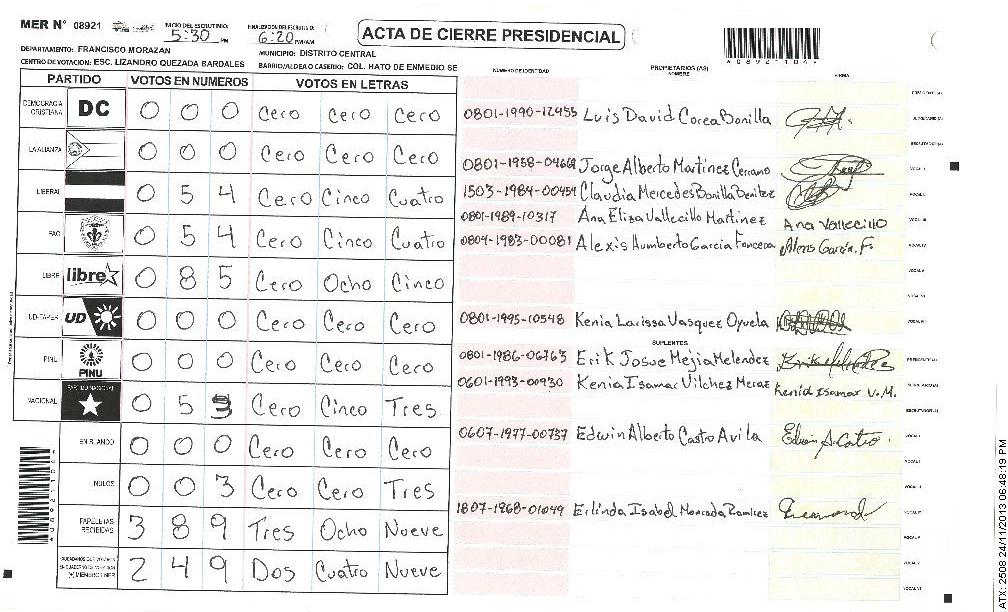 MER N° 08921
INICIO DEL ESCRUTINIO: 5:30 PM
FINALIZACION DEL ESCRUTINIO: 6:20 PM/AM
ACTA DE CIERRE PRESIDENCIAL
*08921104*
DEPARTAMENTO: FRANCISCO MORAZAN
MUNICIPIO: DISTRITO CENTRAL
CENTRO DE VOTACION: ESC. LIZANDRO QUEZADA BARDALES
BARRIO/ALDEA O CASERIO: COL. HATO DE ENMEDIO SE
PARTIDO VOTOS EN NUMEROS VOTOS EN LETRAS
NÚMERO DE IDENTIDAD PROPIETARIOS (AS) NOMBRE FIRMA
DEMOCRACIA CRISTIANA DC 0 0 0 Cero Cero Cero
LA ALIANZA 0 0 0 Cero Cero Cero
LIBERAL 0 5 4 Cero Cinco Cuatro
PAC 0 5 4 Cero Cinco Cuatro
LIBRE libre 0 8 5 Cero Ocho Cinco
UD-FAPER UD 0 0 0 Cero Cero Cero
PINU PINU 0 0 0 Cero Cero Cero
NACIONAL PARTIDO NACIONAL 0 5 3 Cero Cinco Tres
EN BLANCO 0 0 0 Cero Cero Cero
NULOS 0 0 3 Cero Cero Tres
PAPELETAS RECIBIDAS 3 8 9 Tres Ocho Nueve
(+) MIEMBROS MER 2 4 9 Dos Cuatro Nueve
0801-1990-12955 Luis David Corea Bonilla
0801-1958-04668 Jorge Alberto Martinez Cerrano
1503-1984-00454 Claudia Mercedes Bonilla Benitez
0801-1989-10317 Ana Eliza Vallecillo Martinez Ana Vallecillo
0804-1983-00081 Alexis Humberto Garcia Fonceca Alexis Garcia. F.
0801-1995-10548 Kenia Larissa Vasquez Oyuela
SUPLENTES
0801-1986-06763 Erik Josue Mejia Melendez
0601-1993-00930 Kenia Isamar Vilchez Meraz Kenia Isamar V.M.
0607-1977-00737 Edwin Alberto Castro Avila Edwin A. Castro.
1807-1968-01049 Erlinda Isabel Moncada Ramirez
ATX: 2508 24/11/2013 06:48:19 PM